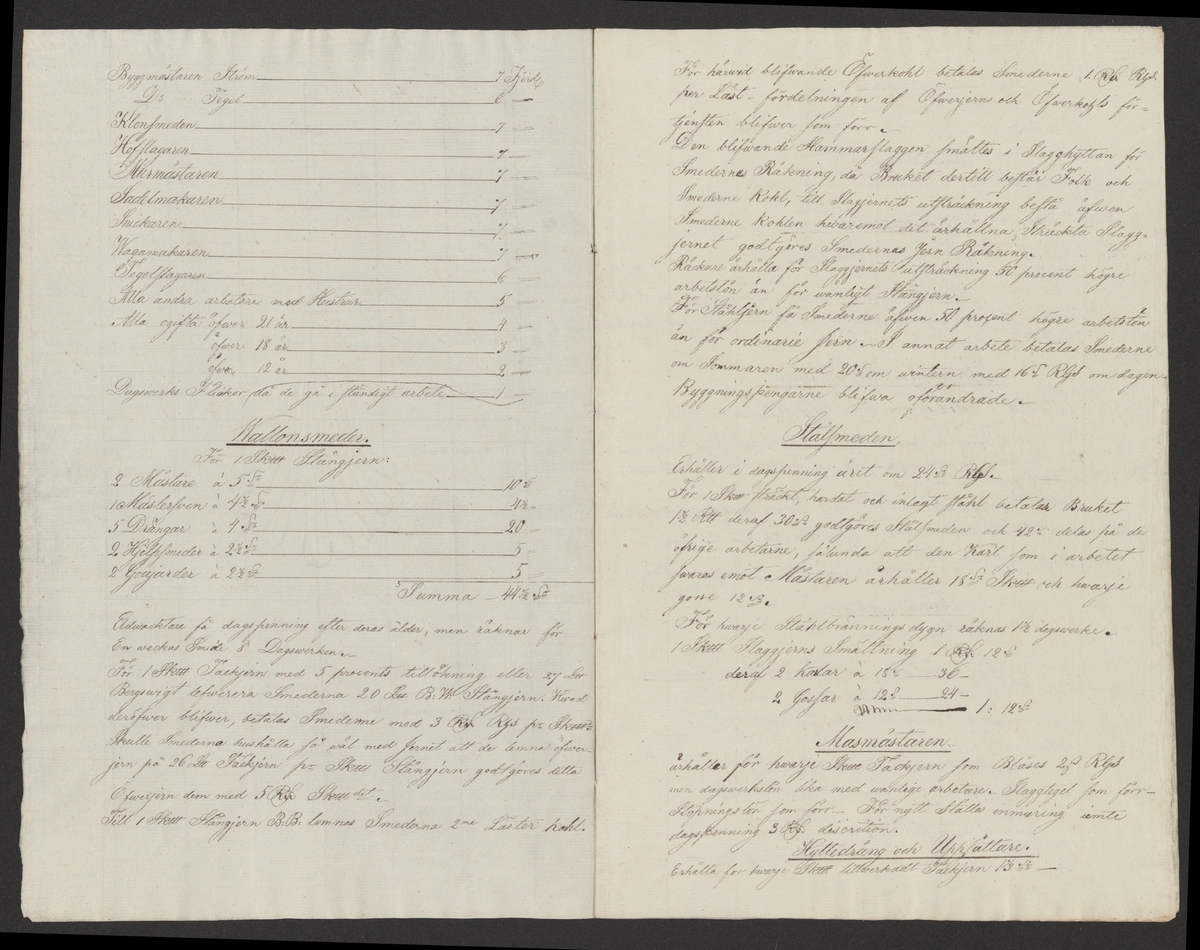 Byggmästaren Ström 7 Fjerd.
Do Tegel 6 —
Klensmeden 7 —
Hofslagaren 7 —
Murmästaren 7 —
Sadelmakaren 7 —
Snickaren 7 —
Wagnmakaren 7 —
Tegelslagaren 6 —
Alla andra arbetare med Hustrur 5 —
Alla ogifta öfwer 21 år 4 —
öfwer 18 år 3 —
öfwer 12 år 2 —
Dagswerks Flickor då de gå i ständigt arbete 1 —
Wallonsmeder.
För 1 Sk℔ Stångjern:
2 Mästare à 5 sk 10 sk
1 Mästersven à 4½ sk 4½ —
5 Drängar à 4 sk 20 —
2 Hjelpsmeder à 2½ sk 5 —
2 Goujarder à 2½ sk 5 —
Summa 44½ sk
Eldwacktare få dagspenning efter deras ålder, men räknar för
En weckas Smide 8 Dagswerken.
För 1 Sk℔ Tackjern med 5 procents tillökning eller 27 L℔
Bergswigt lefwerera Smederna 20 L℔ B:W: Stångjern. Hwad
deröfwer blifwer, betalas Smederne med 3 Rd Rgs pr Sk℔
Skulle Smederna hushålla så wäl med Jernet att de lemna öfwer-
jern på 26 L℔ Tackjern pr Sk℔ Stångjern godtgöres detta
Öfwerjern dem med 5 Rd Sk℔ det.
Till 1 Sk℔ Stångjern B:B: lemnas Smederna 2ne Läster Kohl.
För härwid blifwande Öfwerkohl betalas Smederne 1. Rd Rgs.
per Läst — fördelningen af Öfwerjern och Öfwerkohls för-
tjensten blifwer som förr.
Den blifwande Hammarslaggen smältes i Slagghyttan för
Smedernes Räkning, då Bruket dertill består Folk och
Smederne Kohl, till Slagjernets utsträckning bestå äfwen
Smederne Kohlen hwaremot det erhållna, sträckta Slagg-
jernet godtgöres Smedernas Jern Räkning.
Räckare erhålla för Slaggjernets utsträckning 50 procent högre
arbetslön än för wanligt Stångjern.
För Stålsjern få Smederne äfwen 50 procent högre arbetslön
än för ordinarie Jern. — I annat arbete betalas Smederne
om Sommaren med 20 sk om wintern med 16 sk Rgs om dagen
Byggningspengarne blifwa oförändrade.
Stålsmeden
Erhåller i dagspenning året om 24 sk Rgs.
För 1 Sk℔ sträckt, härdet och inlagt stål betalar Bruket
1½ Rd deraf 30 sk godtgöres Stålsmeden och 42 sk delas på de
öfrige arbetarne, sålunda att den Karl som i arbetet
swarar emot Mästaren erhåller 18 sk Sk℔ och hwarje
gosse 12 sk.
För hwarje Stålbrännings dygn räknas 1½ dagswerke.
1 Sk℔ Slaggjerns Smältning 1 Rd 12 sk
deraf 2 Karlar à 18 sk 36 —
2 Gossar à 12 sk 24 —
1: 12 sk
Masmästaren.
erhåller för hwarje Sk℔ Tackjern som Blåses 2 sk Rgs
men dagswerkslön lika med wanlige arbetare. Slaggtegel som förr —
Stopningslön som förr — För nytt Ställes inmuring jemte
dagspenning 3 Rd discretion.
Hyttedräng och Uppsättare.
Erhålla för hwarje Sk℔ tillwerkadt Tackjern 1½ sk —